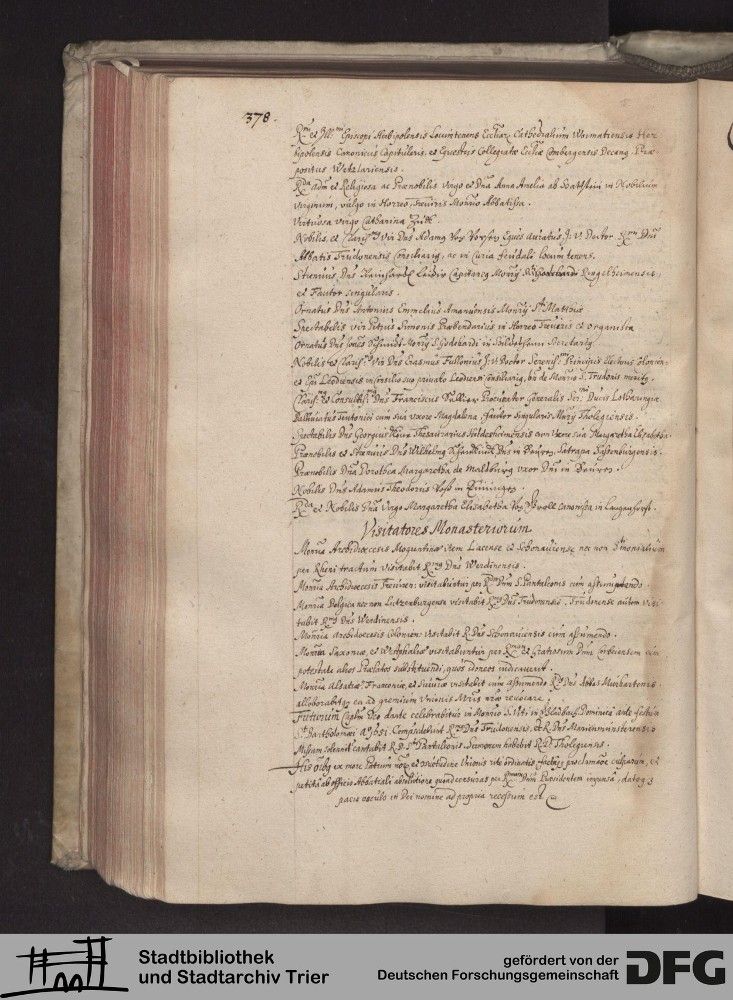 378.
R.mi et Ill.mi Episcopi Herbipolensis Locumtenens Eccliar. Cathedralium Wormatiensis Her
bipolensis Canonicus Capitularis, et Equestris Collegiatæ Eccliæ Combergensis Decang, Præ
positus Wetzlariensis.
R.da adm. et Religiosa ac Prænobilis virgo et Dna Anna Amelia ab in Nobilium
virginum, vulgo in Horreo, Treuiris Monrio Abbatissa.
Virtuosa virgo Catharina
Nobilis et Clariss. Vir Dns Adamg Eques auratus J. V. Doctor R.mi Dni
Abbatis Trudonensis Consiliarig, ac in Curia feudali locum tenens.
Strenuus Dns Capitaneg Monrij Ringelheimensis,
et Fautor singularis.
Ornatus Dns Antonius Emmelius Amanuensis Monrij S.ti Matthiæ
Spectabilis vir Petrus Simonis Præbendarius in Horreo Treuiris et organista
Ornatus Dns Monrij S. Godehardi in Secretarig
Nobilis et Clariss. Vir Dns Erasmus Fullonius J. V. Doctor Sereniss. Principis Electoris Colonien:
et Epi Leodiensis in consilio suo privato Leodien: Consiliarig, de Monrio S. Trudonis
Clariss. et Consultiss. Dns Franciscus Procurator Generalis Ser.mi Ducis Lotharingiæ
Balliuatus Teutonici cum sua uxore Magdalena, fautor singularis Monrij Tholegiensis.
Spectabilis Dns Georgius Thesaurarius Hildesheimensis cum uxore sua Margaretha Elisabetha.
Prænobilis et Strenuus Dns Wilhelmg Dns in Satrapa
Prænobilis Dna Dorothea Margaretha de Maltzburg uxor Dni in
Nobilis Dns Adamus Theodorus in
R.da et Nobilis Dna Virgo Margaretha Elisabetha Canonissa in Langenhorst.
Visitatores Monasteriorum
Monria Archidiœcesis Moguntinæ item Lacense et Schonauiense nec non S.monialium
per Rheni tractum visitabit R.mg Dns Werdinensis.
Monria Archidiœcesis Treuiren: visitabuntur per R.dm Dnm S. Pantaleonis cum assumendo.
Monria Belgica nec non Lutzenburgense visitabit R.mg Dns Trudonensis, Trudonense autem visi
tabit R.mg Dns Werdinensis.
Monria Archidiœcesis Colonien: visitabit R. Dns Schonauiensis cum assumendo.
Monria Saxoniæ, et Westphaliæ visitabuntur per R.mm et Gratiosum Dnm Corbeiensem cum
potestate alios Prælatos substituendi, quos idoneos iudicauerit.
Monria Alsatiæ, Franconiæ, et Sueuiæ visitabit cum assumendo R.mg Dns Abbas Murhartensis
allaborabitqg ea ad gremium Unionis Mris nræ reuocare.
Futurum Caplm Deo dante celebrabitur in Monrio S. Viti in Gladbach, Dominica ante festum
S.ti Bartholomæi Compræsidebunt R.mg Dns Trudonensis, et R. Dns Marienmünsterensis
Missam solemnit. cantabit R. D. S.ti Pantaleonis Sermonem habebit R. D. Tholegiensis.
His oibg ex more Patrum nror. et consuetudine Unionis rite ordinatis, factaqg proclamaoe culparum, et
petitâ ab officio Abbatiali absolutione quoad censuras per R.mum Dnm Præsidentem impensâ, datog 3
pacis osculo in Dei nomine ad propria recessum est.
Stadtbibliothek
und Stadtarchiv Trier
gefördert von der
Deutschen Forschungsgemeinschaft
DFG